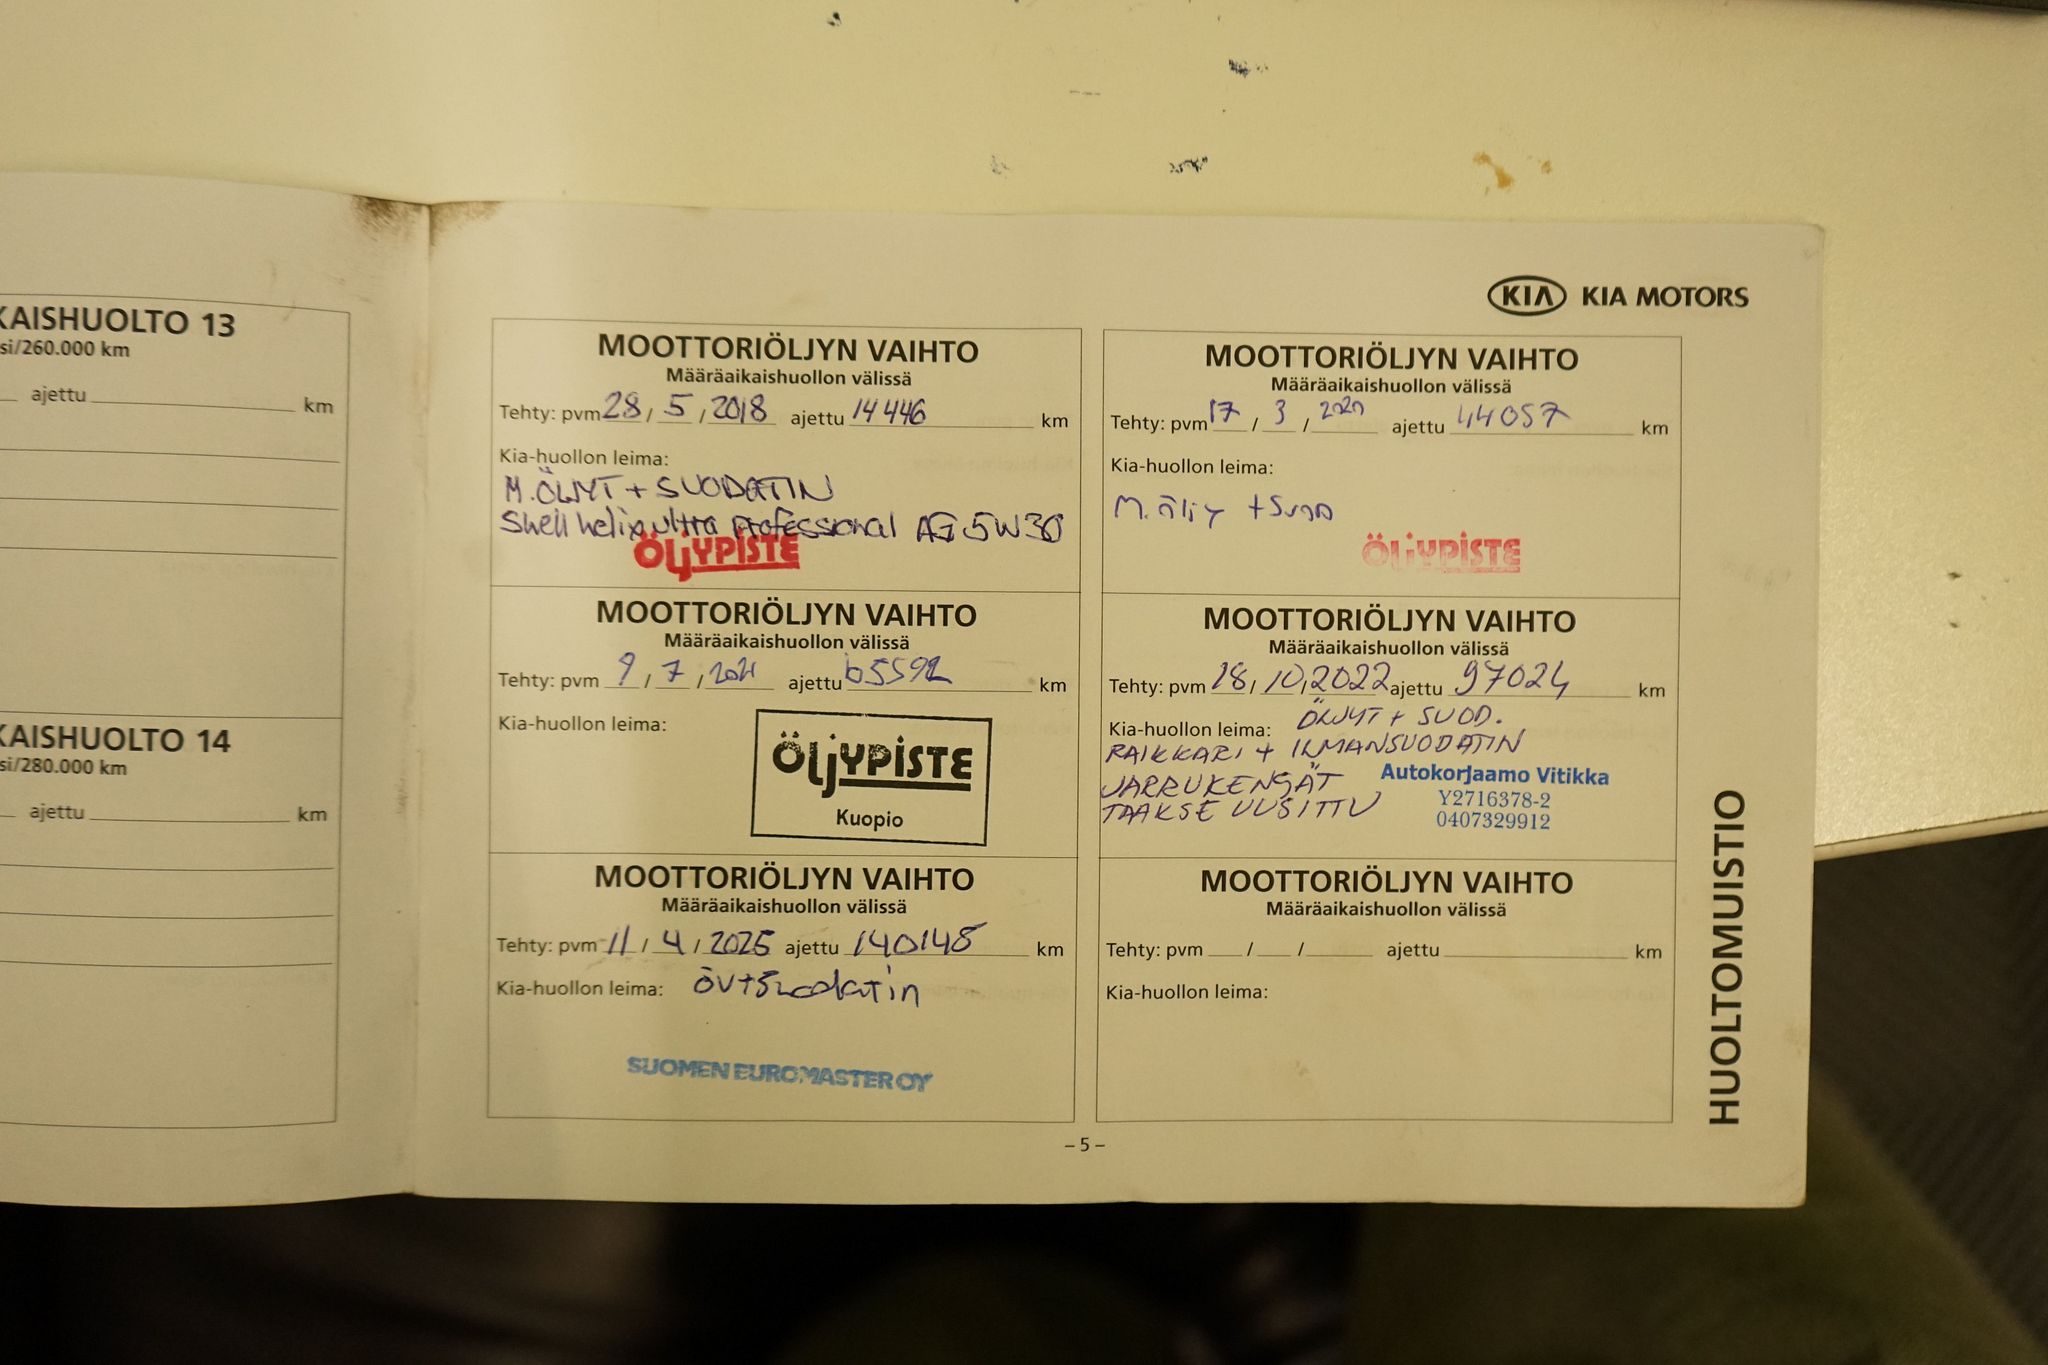 KAISHUOLTO 13
si/260.000 km
ajettu km
KAISHUOLTO 14
si/280.000 km
ajettu km
KIA KIA MOTORS
MOOTTORIÖLJYN VAIHTO
Määräaikaishuollon välissä
Tehty: pvm 28 / 5 / 2018 ajettu 14446 km
Kia-huollon leima:
M. ÖLJYT + SUODATIN
Shell helix ultra Professional AG 5W30
ÖLJYPISTE
MOOTTORIÖLJYN VAIHTO
Määräaikaishuollon välissä
Tehty: pvm 17 / 3 / 2020 ajettu 44057 km
Kia-huollon leima:
M. öljy + Suod
ÖLJYPISTE
MOOTTORIÖLJYN VAIHTO
Määräaikaishuollon välissä
Tehty: pvm 9 / 7 / 2021 ajettu 65592 km
Kia-huollon leima:
ÖLJYPISTE
Kuopio
MOOTTORIÖLJYN VAIHTO
Määräaikaishuollon välissä
Tehty: pvm 18 / 10 / 2022 ajettu 97024 km
Kia-huollon leima: ÖLJYT + SUOD.
RAIKKARI + ILMANSUODATIN
JARRUKENGÄT
TAAKSE UUSITTU
Autokorjaamo Vitikka
Y2716378-2
0407329912
MOOTTORIÖLJYN VAIHTO
Määräaikaishuollon välissä
Tehty: pvm 11 / 4 / 2025 ajettu 140148 km
Kia-huollon leima: ÖV+Suodatin
SUOMEN EUROMASTER OY
MOOTTORIÖLJYN VAIHTO
Määräaikaishuollon välissä
Tehty: pvm / / ajettu km
Kia-huollon leima:
HUOLTOMUISTIO
– 5 –